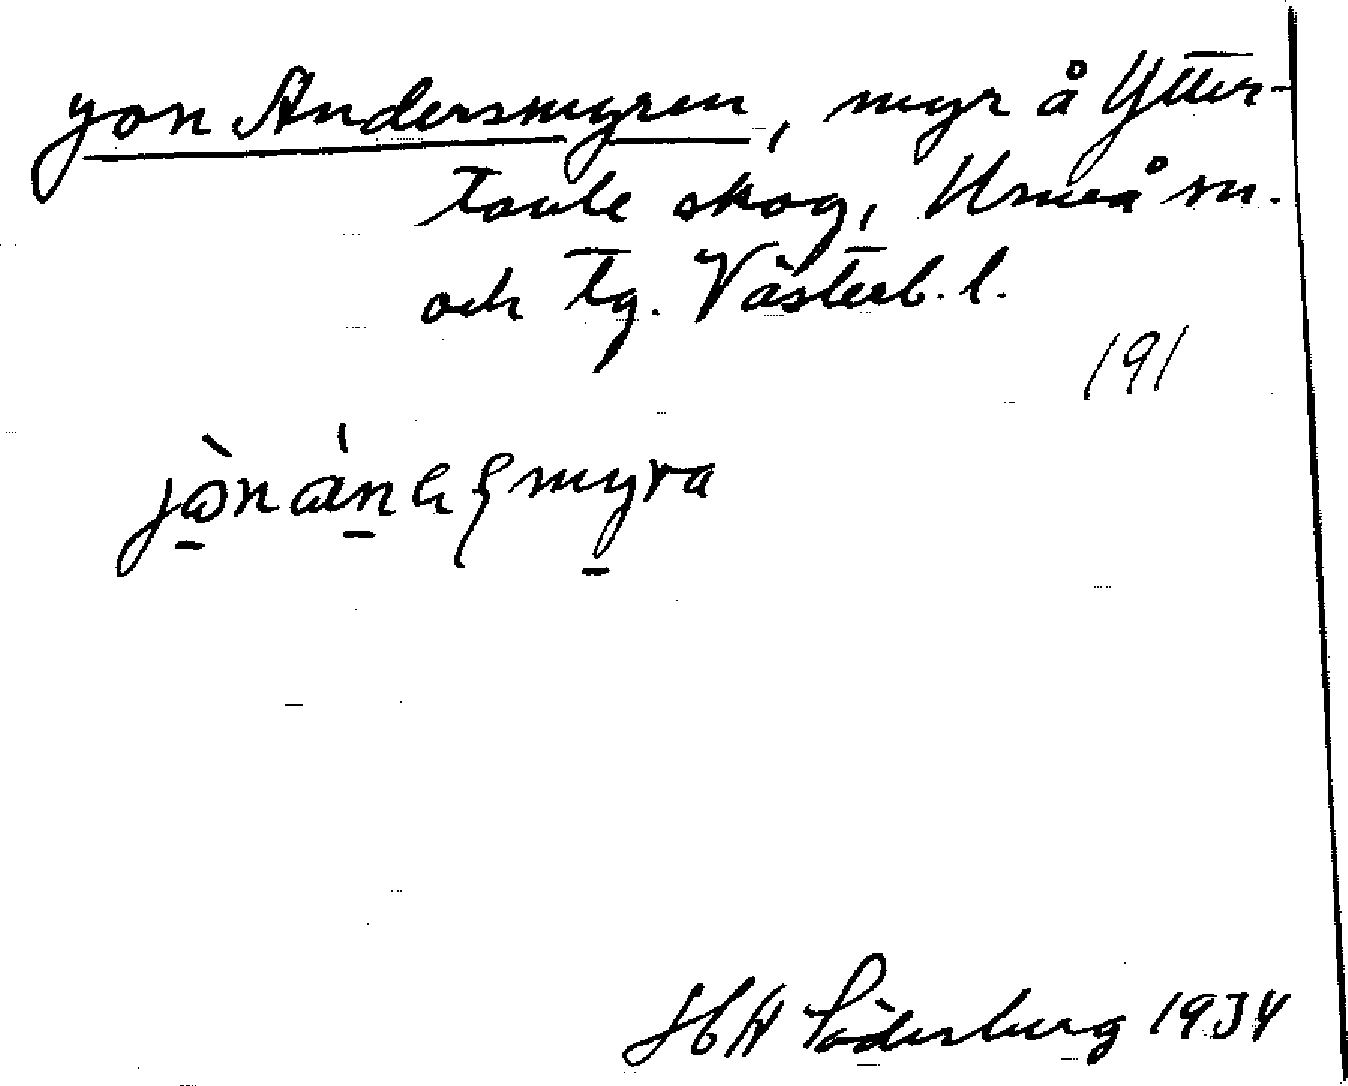 Jon Andersmyren, myr å Ytter-
tavle skog, Umeå sn.
och tg. Västerb. l.
191
Söderberg 1934